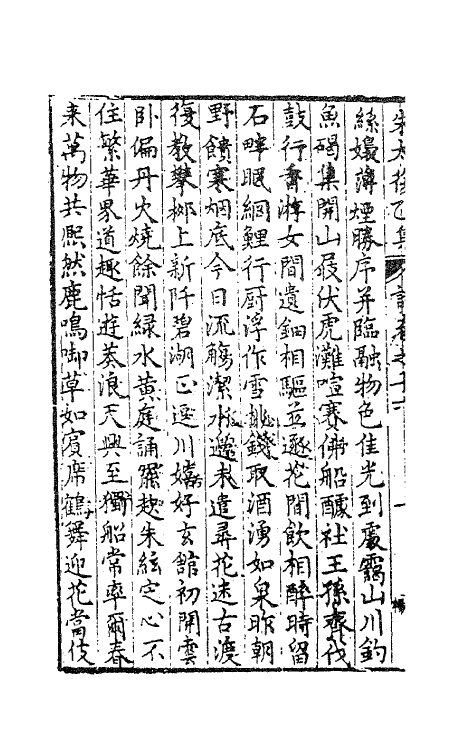 絲嬝薄煙勝序并臨融物色佳光到處靄山川釣
魚碣集開山屐伏虎灘喧賽佛船醵社王孫齊伐
鼓行香游女間遺鈿相驅並逐花間飲相醉時留
石畔眠網鯉行厨浮作雪挑錢取酒湧如泉昨朝
野饋寒烟底今日流觴潔水邊未遣尋花迷古渡
復教攀柳上新阡碧湖正遶川嬉好玄館初開雲
卧偏丹火燒餘聞綠水黃庭誦罷趂朱絃定心不
住繁華界道趣恬遊莽浪天興至獨船常率爾春
来萬物共熙然鹿鳴啣草如賓席鶴舞迎花當伎